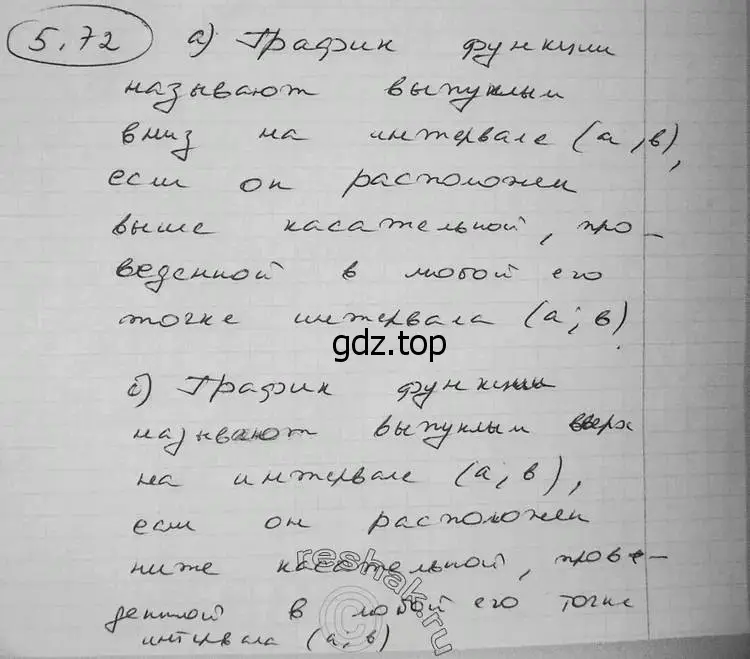 5.72 а) График функции
называют выпуклым
вниз на интервале (а, в),
если он расположен
выше касательной, про-
веденной в любой его
точке интервала (а; в)
gdz.top
б) График функции
называют выпуклым вверх
на интервале (а; в),
если он расположен
ниже касательной, прове-
денной в любой его точке
интервала (а, в)
reshak.ru
©